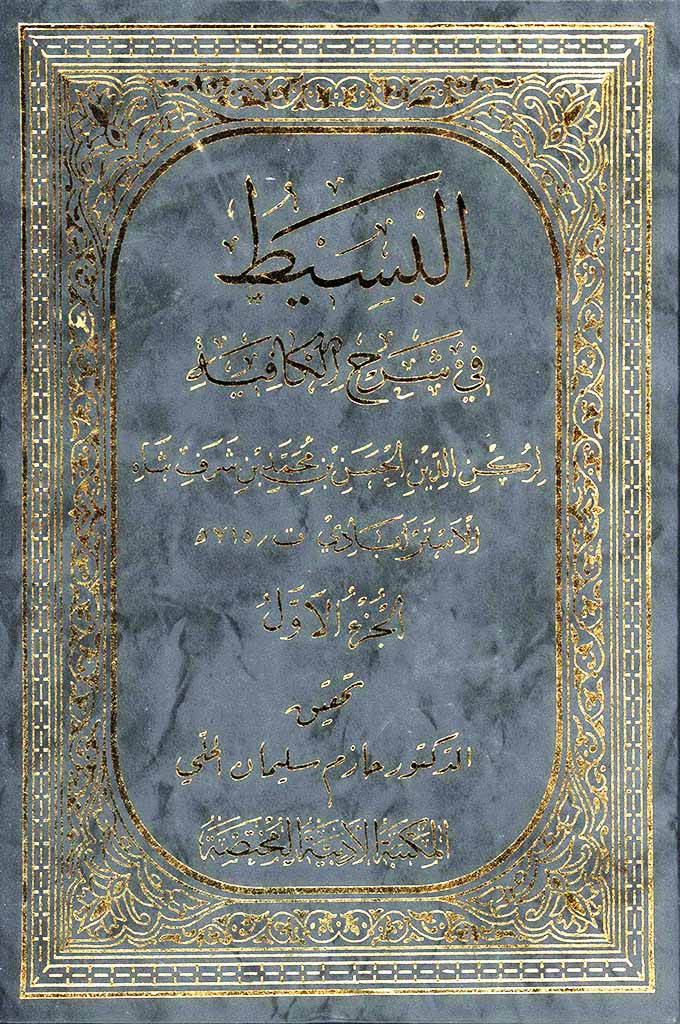 البَسِيْط
فِي شَرْحِ الكَافِيَةِ
لِرُكْنِ الدِّيْنِ الحَسَنِ بْنِ مُحَمَّدِ بْنِ شَرَفْ شَاه
الاستَرَآبَادِيّ ت/ ٧١٥ه
الجُزْءُ الأَوَّلُ
تحقيق
الدكتور حازم سليمان الحلّي
المَكتَبَةُ الأَدَبِيَّةُ المُخْتَصَّةُ